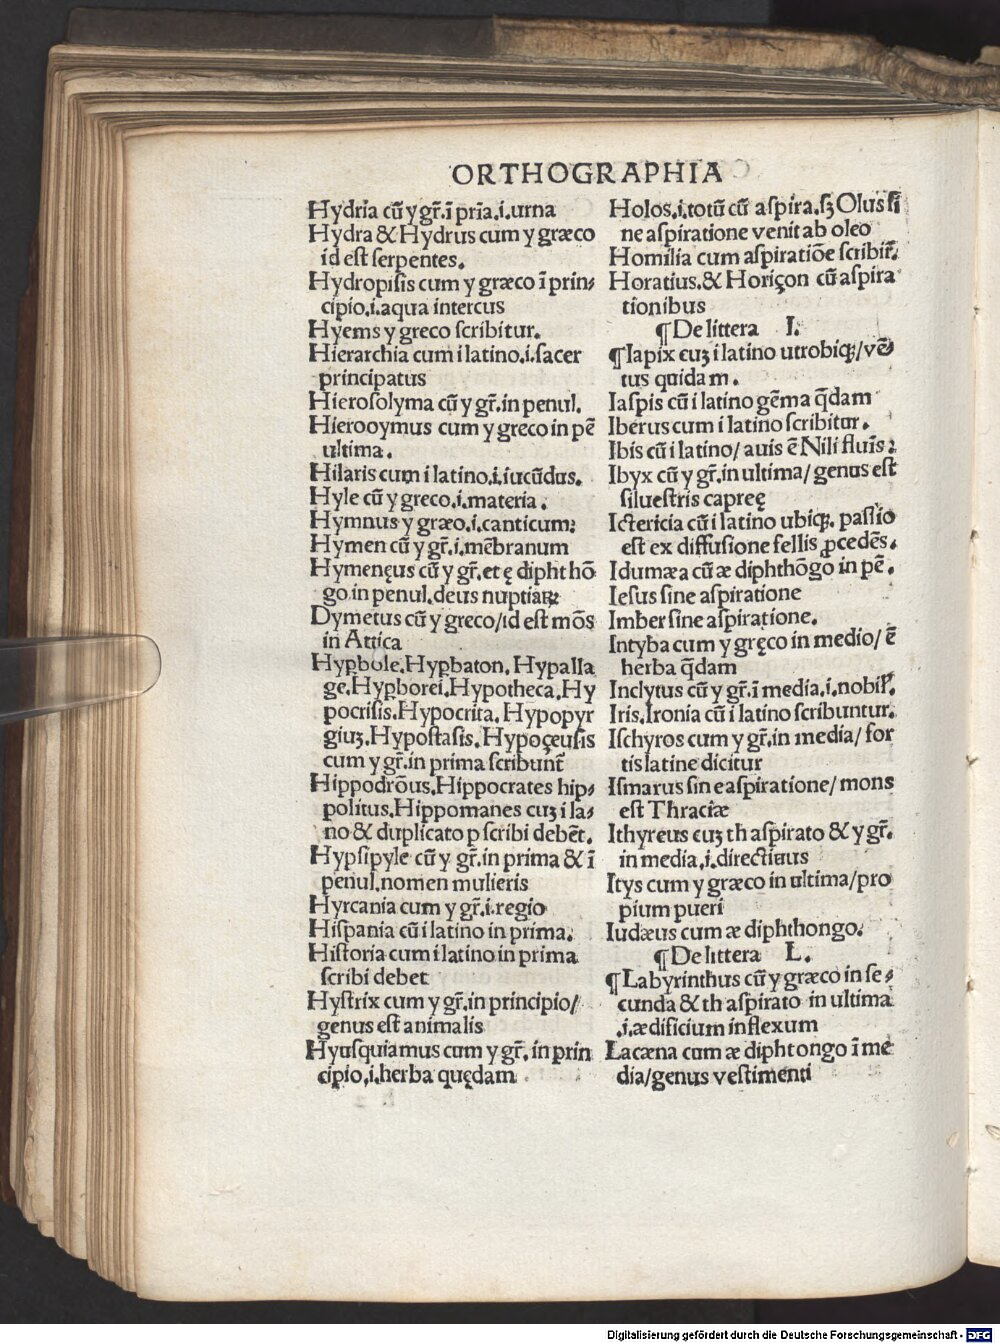 ORTHOGRAPHIA
Hydria cū y gr̄. ī pr̄ia .i. urna
Hydra & Hydrus cum y græco
id est serpentes.
Hydropisis cum y græco ī prin-
cipio .i. aqua intercus
Hyems y greco scribitur.
Hierarchia cum i latino .i. sacer
principatus
Hierosolyma cū y gr̄. in penul.
Hierooymus cum y greco in pē
ultima.
Hilaris cum i latino .i. iucūdus.
Hyle cū y greco .i. materia.
Hymnus y græo .i. canticum:
Hymen cū y gr̄. i. mēbranum
Hymenęus cū y gr̄. et ę diphthō
go in penul. deus nuptiaꝝ
Dymetus cū y greco/id est mōs
in Attica
Hyꝑbole. Hyꝑbaton. Hypalla
ge. Hyꝑborei. Hypotheca. Hy
pocrisis. Hypocrita. Hypopyr
giuꝫ. Hypostasis. Hypoçeusis
cum y gr̄. in prima scribunt̄
Hippodrōus. Hippocrates hip-
politus. Hippomanes cuꝫ i la-
no & duplicato p scribi debēt.
Hypsipyle cū y gr̄. in prima & ī
penul. nomen mulieris
Hyrcania cum y gr̄. i. regio
Hispania cū i latino in prima.
Historia cum i latino in prima
scribi debet
Hystrix cum y gr̄. in principio/
genus est animalis
Hyusquiamus cum y gr̄. in prin
cipio .i. herba quędam
Holos .i. totū cū aspira. sꝫ Olus si
ne aspiratione venit ab oleo
Homilia cum aspiratiōe scribit̄.
Horatius. & Horiçon cū aspira
tionibus
¶ De littera I.
¶ Iapix cuꝫ i latino utrobiqꝫ/vē
tus quidam.
Iaspis cū i latino gēma q̄dam
Iberus cum i latino scribitur.
Ibis cū i latino/ auis ē Nili fluīs:
Ibyx cū y gr̄. in ultima/ genus est
siluestris capreę
Ictericia cū i latino ubiqꝫ. passio
est ex diffusione fellis ꝓcedēs.
Idumæa cū æ diphthōgo in pē.
Iesus sine aspiratione
Imber sine aspiratione.
Intyba cum y gręco in medio/ ē
herba q̄dam
Inclytus cū y gr̄. ī media .i. nobil̄.
Iris. Ironia cū i latino scribuntur.
Ischyros cum y gr̄. in media/ for
tis latine dicitur
Ismarus sine aspiratione/ mons
est Thraciæ
Ithyreus cuꝫ th aspirato & y gr̄.
in media .i. directiuus
Itys cum y græco in ultima/pro
pium pueri
Iudæus cum æ diphthongo.
¶ De littera L.
¶ Labyrinthus cū y græco in se-
cunda & th aspirato in ultima
.i. ædificium inflexum
Lacæna cum æ dipht ongo ī me
dia/genus vestimenti
Digitalisierung gefördert durch die Deutsche Forschungsgemeinschaft - DFG